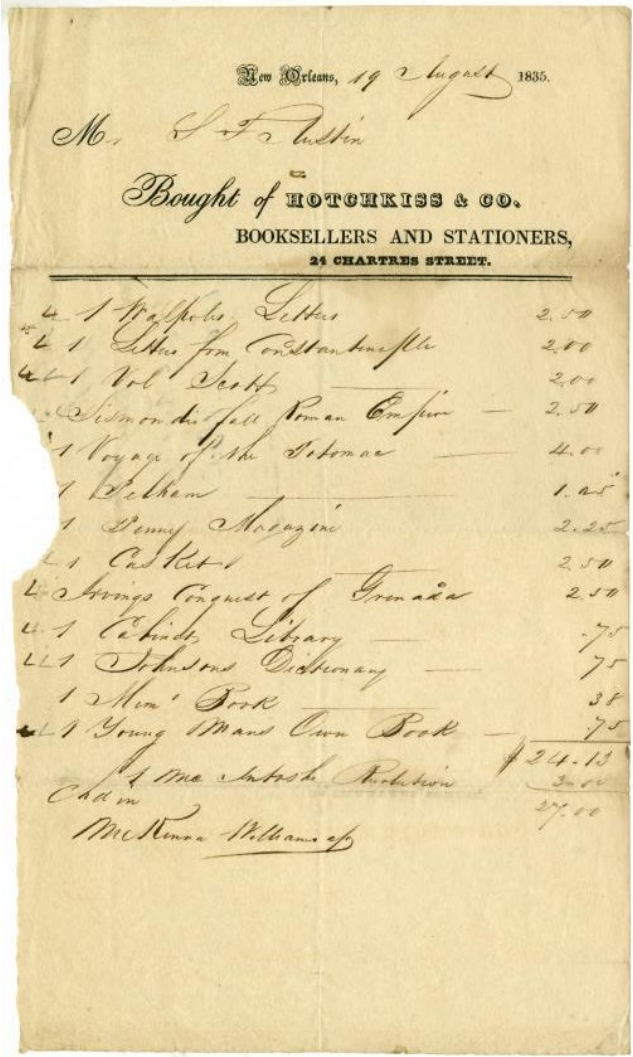 New Orleans, 19 August 1835.
Mr S F Austin
Bought of HOTCHKISS & CO.
BOOKSELLERS AND STATIONERS,
24 CHARTRES STREET.
1 Walpoles Letters 2.50
1 Letters from Constantinople 2.00
1 Vol Scott 2.00
Sismondis fall Roman Empire 2.50
1 Voyage of the Potomac 4.00
1 Pelham 1.25
1 Penny Magazine 2.25
1 Casket 2.50
Irvings Conquest of Grenada 2.50
1 Cabinet Library .75
1 Johnsons Dictionary 75
1 Mem' Book 38
1 Young Mans Own Book .75
$24.13
1 McIntosh Revolution 3.00
27.00
McKinna Williams